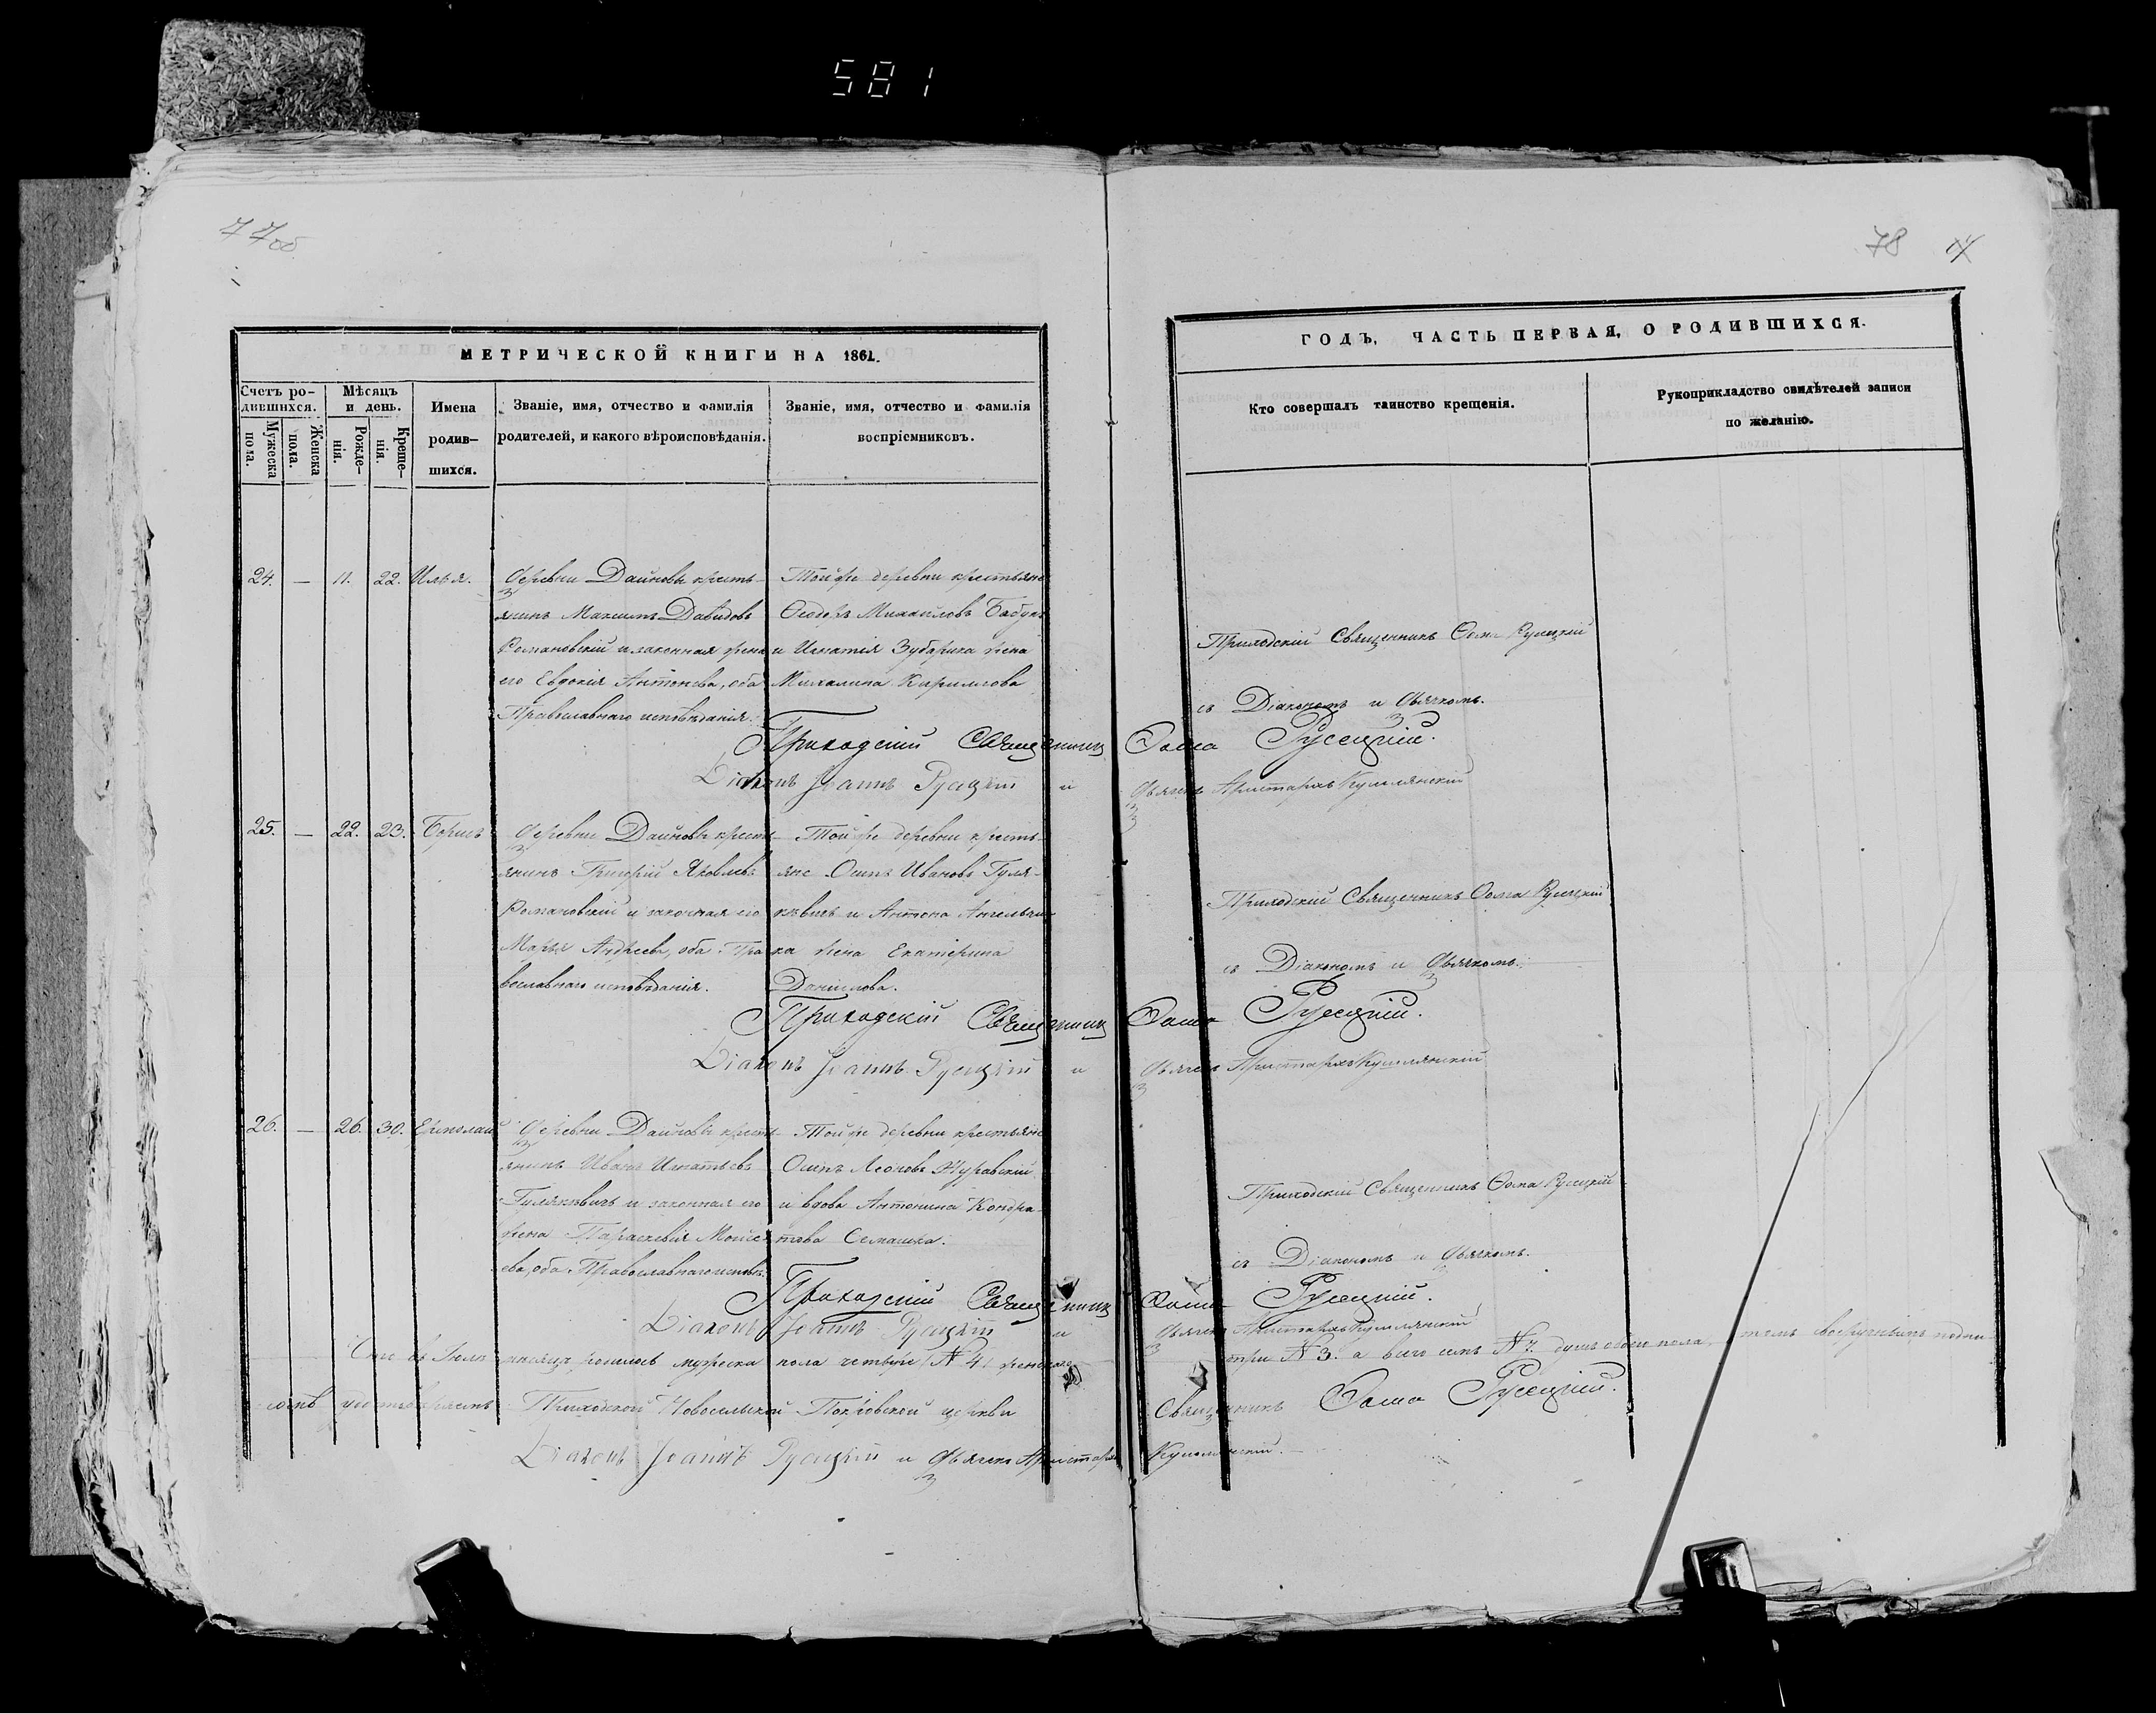 581
77об
78
МЕТРИЧЕСКОЙ КНИГИ НА 1861.
ГОДЪ, ЧАСТЬ ПЕРВАЯ, О РОДИВШИХСЯ.
Счетъ ро-
дившихся.
Мужеска
пола.
Женска
пола.
Мѣсяцъ
и день.
Рожде-
нія.
Креще-
нія.
Имена
родив-
шихся.
Званіе, имя, отчество и фамилія
родителей, и какого вѣроисповѣданія.
Званіе, имя, отчество и фамилія
воспріемниковъ.
Кто совершалъ таинство крещенія.
Рукоприкладство свидѣтелей записи
по желанію.
24. — 11. 22. Илья.
Деревни Дайновы кресть-
янинъ Максимъ Давидовъ
Романовскій и законная жена
его Евдокія Антонева, оба
Православнаго исповѣданія.
Тойже деревни крестьяне
Ѳеодоръ Михаиловъ Бабук
и Игнатія Зубрика жена
Михалина Кирилова
Приходскій Священникъ Ѳома Русецкій
съ Діакономъ и Дьячкомъ.
Приходскій Священникъ Ѳома Русецкій.
Діаконъ Іоаннъ Русецкій и Дьячекъ Аристархъ
25. — 22. 23. Борисъ
Деревни Дайновы кресть-
янинъ Григорій Яковлевъ
Романовскій и законная его
Марья Андреева, оба Пра-
вославнаго исповѣданія.
Тойже деревни кресть-
яне Осипъ Ивановъ Гуля-
кевичъ и Антона
жена Екатерина
Даніилова.
Приходскій Священникъ Ѳома Русецкій
съ Діакономъ и Дьячкомъ.
Приходскій Священникъ Ѳома Русецкій.
Діаконъ Іоаннъ Русецкій и Дьячекъ Аристархъ
26. — 26. 30.
Деревни Дайновы кресть-
янинъ Иванъ Игнатьевъ
Гулякевичъ и законная его
жена Параскевія Моисе-
ева, оба Православнаго исповѣ.
Тойже деревни крестьяне
Осипъ Леоновъ Журавскій
и вдова Антонина Кондра-
тьева Семашка.
Приходскій Священникъ Ѳома Русецкій
съ Діакономъ и Дьячкомъ.
Приходскій Священникъ Ѳома Русецкій.
Діаконъ Іоаннъ Русецкій и Дьячекъ Аристархъ
въ Іюлѣ мѣсяцѣ родилось мужеска пола четыре № 4, женскаго три № 3. а всего семь № 7. душъ обоего пола, въ томъ своеручнымъ подпи-
сомъ удостовѣряемъ Приходской Новосельской Покровской церкви Священникъ Ѳома Русецкій.
Діаконъ Іоаннъ Русецкій и Дьячекъ Аристархъ